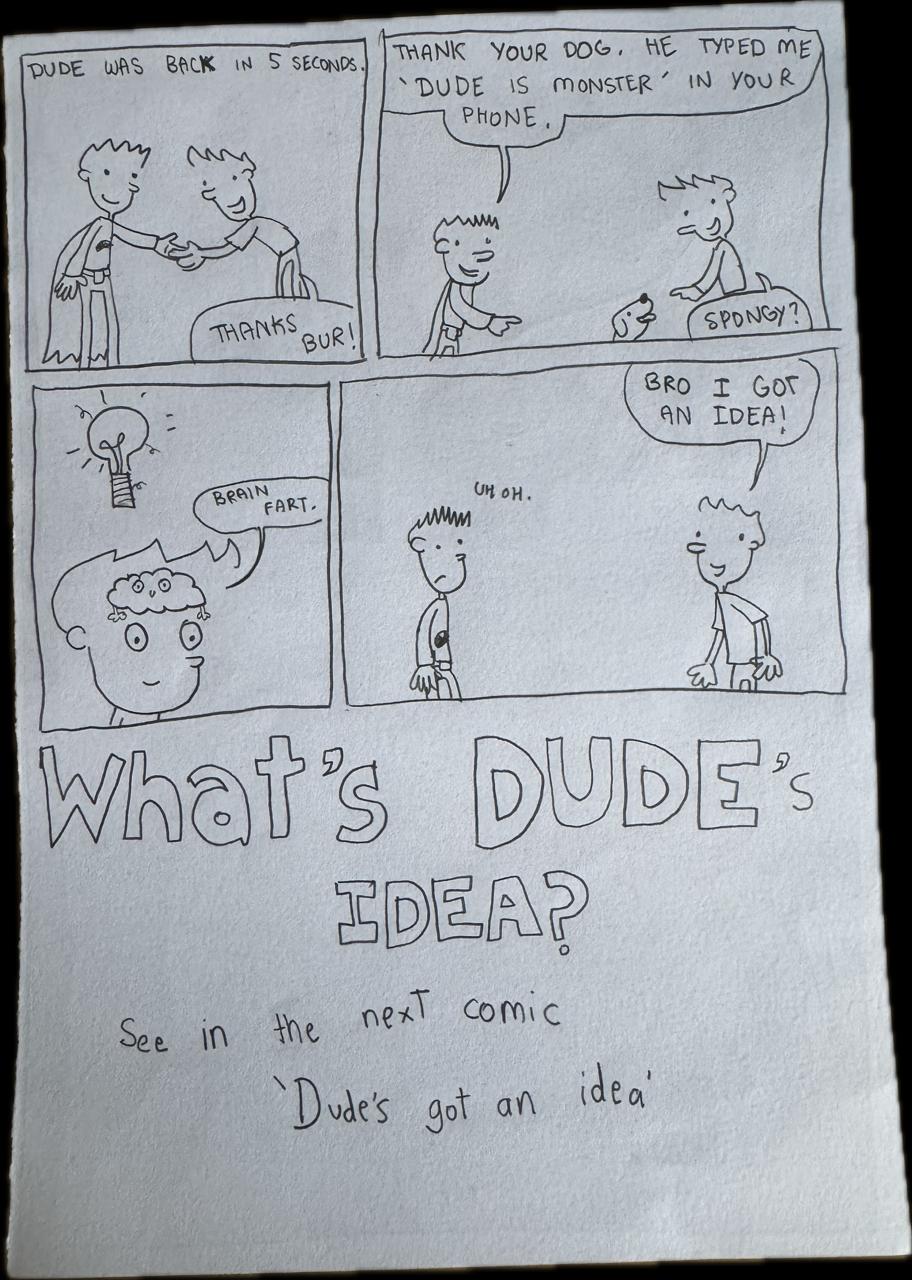 DUDE WAS BACK IN 5 SECONDS.
THANKS
BUR!
THANK YOUR DOG. HE TYPED ME
'DUDE IS MONSTER' IN YOUR
PHONE.
SPONGY?
BRAIN
FART.
BRO I GOT
AN IDEA!
UH OH.
What's DUDE's
IDEA?
See in the next comic
'Dude's got an idea'